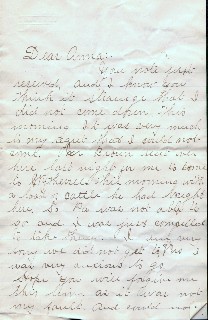 Dear Anna;
Your note just
received, and I know you
think it strange that I
did not come down this
morning. It was very much
to my regret that I could not
come. Mr Brown sent over
here last night for me to come
to this morning with
a load of cattle he had bought
here. So Pa was not able to
go and I was just compelled
to take them. I am
sorry we did not get off as I
was very anxious to go.
Hope you will forgive me
this time as it was not
my fault and could not